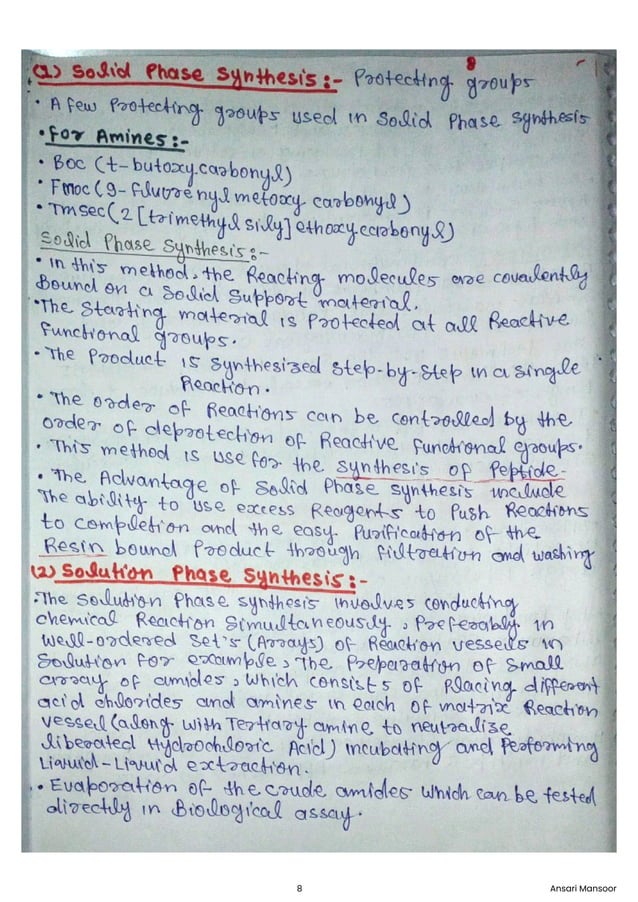 8
(1) Solid Phase Synthesis:- Protecting groups
• A few Protecting groups used in Solid Phase synthesis
• for Amines:-
• Boc (t-butoxycarbonyl)
• Fmoc (9-fluorenyl metoxy carbonyl)
• Tmsec (2[trimethyl sily] ethoxycarbonyl)
Solid Phase Synthesis:-
• In this method, the Reacting molecules are covalently
Bound on a Solid Support material.
• The Starting material is Protected at all Reactive
functional groups.
• The Product is Synthesized step-by-step in a single
Reaction.
• The order of Reactions can be controlled by the
order of deprotection of Reactive functional groups.
• This method is use for the synthesis of Peptide.
• The Advantage of Solid Phase synthesis include
The ability to use excess Reagents to Push Reactions
to completion and the easy Purification of the
Resin bound Product through filtration and washing
(2) Solution Phase Synthesis:-
• The Solution Phase synthesis involves conducting
chemical Reaction Simultaneously, Preferably in
well-ordered Set's (Arrays) of Reaction vessels in
Solution for example, The Preparation of Small
array of amides, which consists of Placing different
acid chlorides and amines in each of matrix Reaction
vessel (along with Tertiary amine to neutralize
liberated Hydrochloric Acid) incubating and Performing
Liquid-Liquid extraction.
• Evaporation of the crude amides which can be tested
directly in Biological assay.
8
Ansari Mansoor